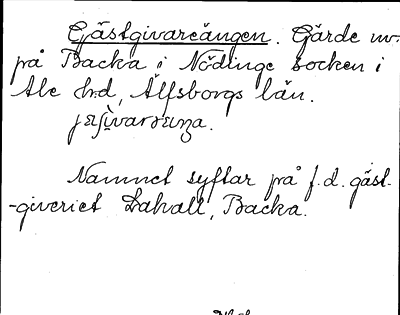 Gästgivareängen. Gärde nv.
på Backa i Nödinge socken i
Ale hd, Älfsborgs län.

Namnet syftar på f.d. gäst-
-giveriet Dalvall, Backa.